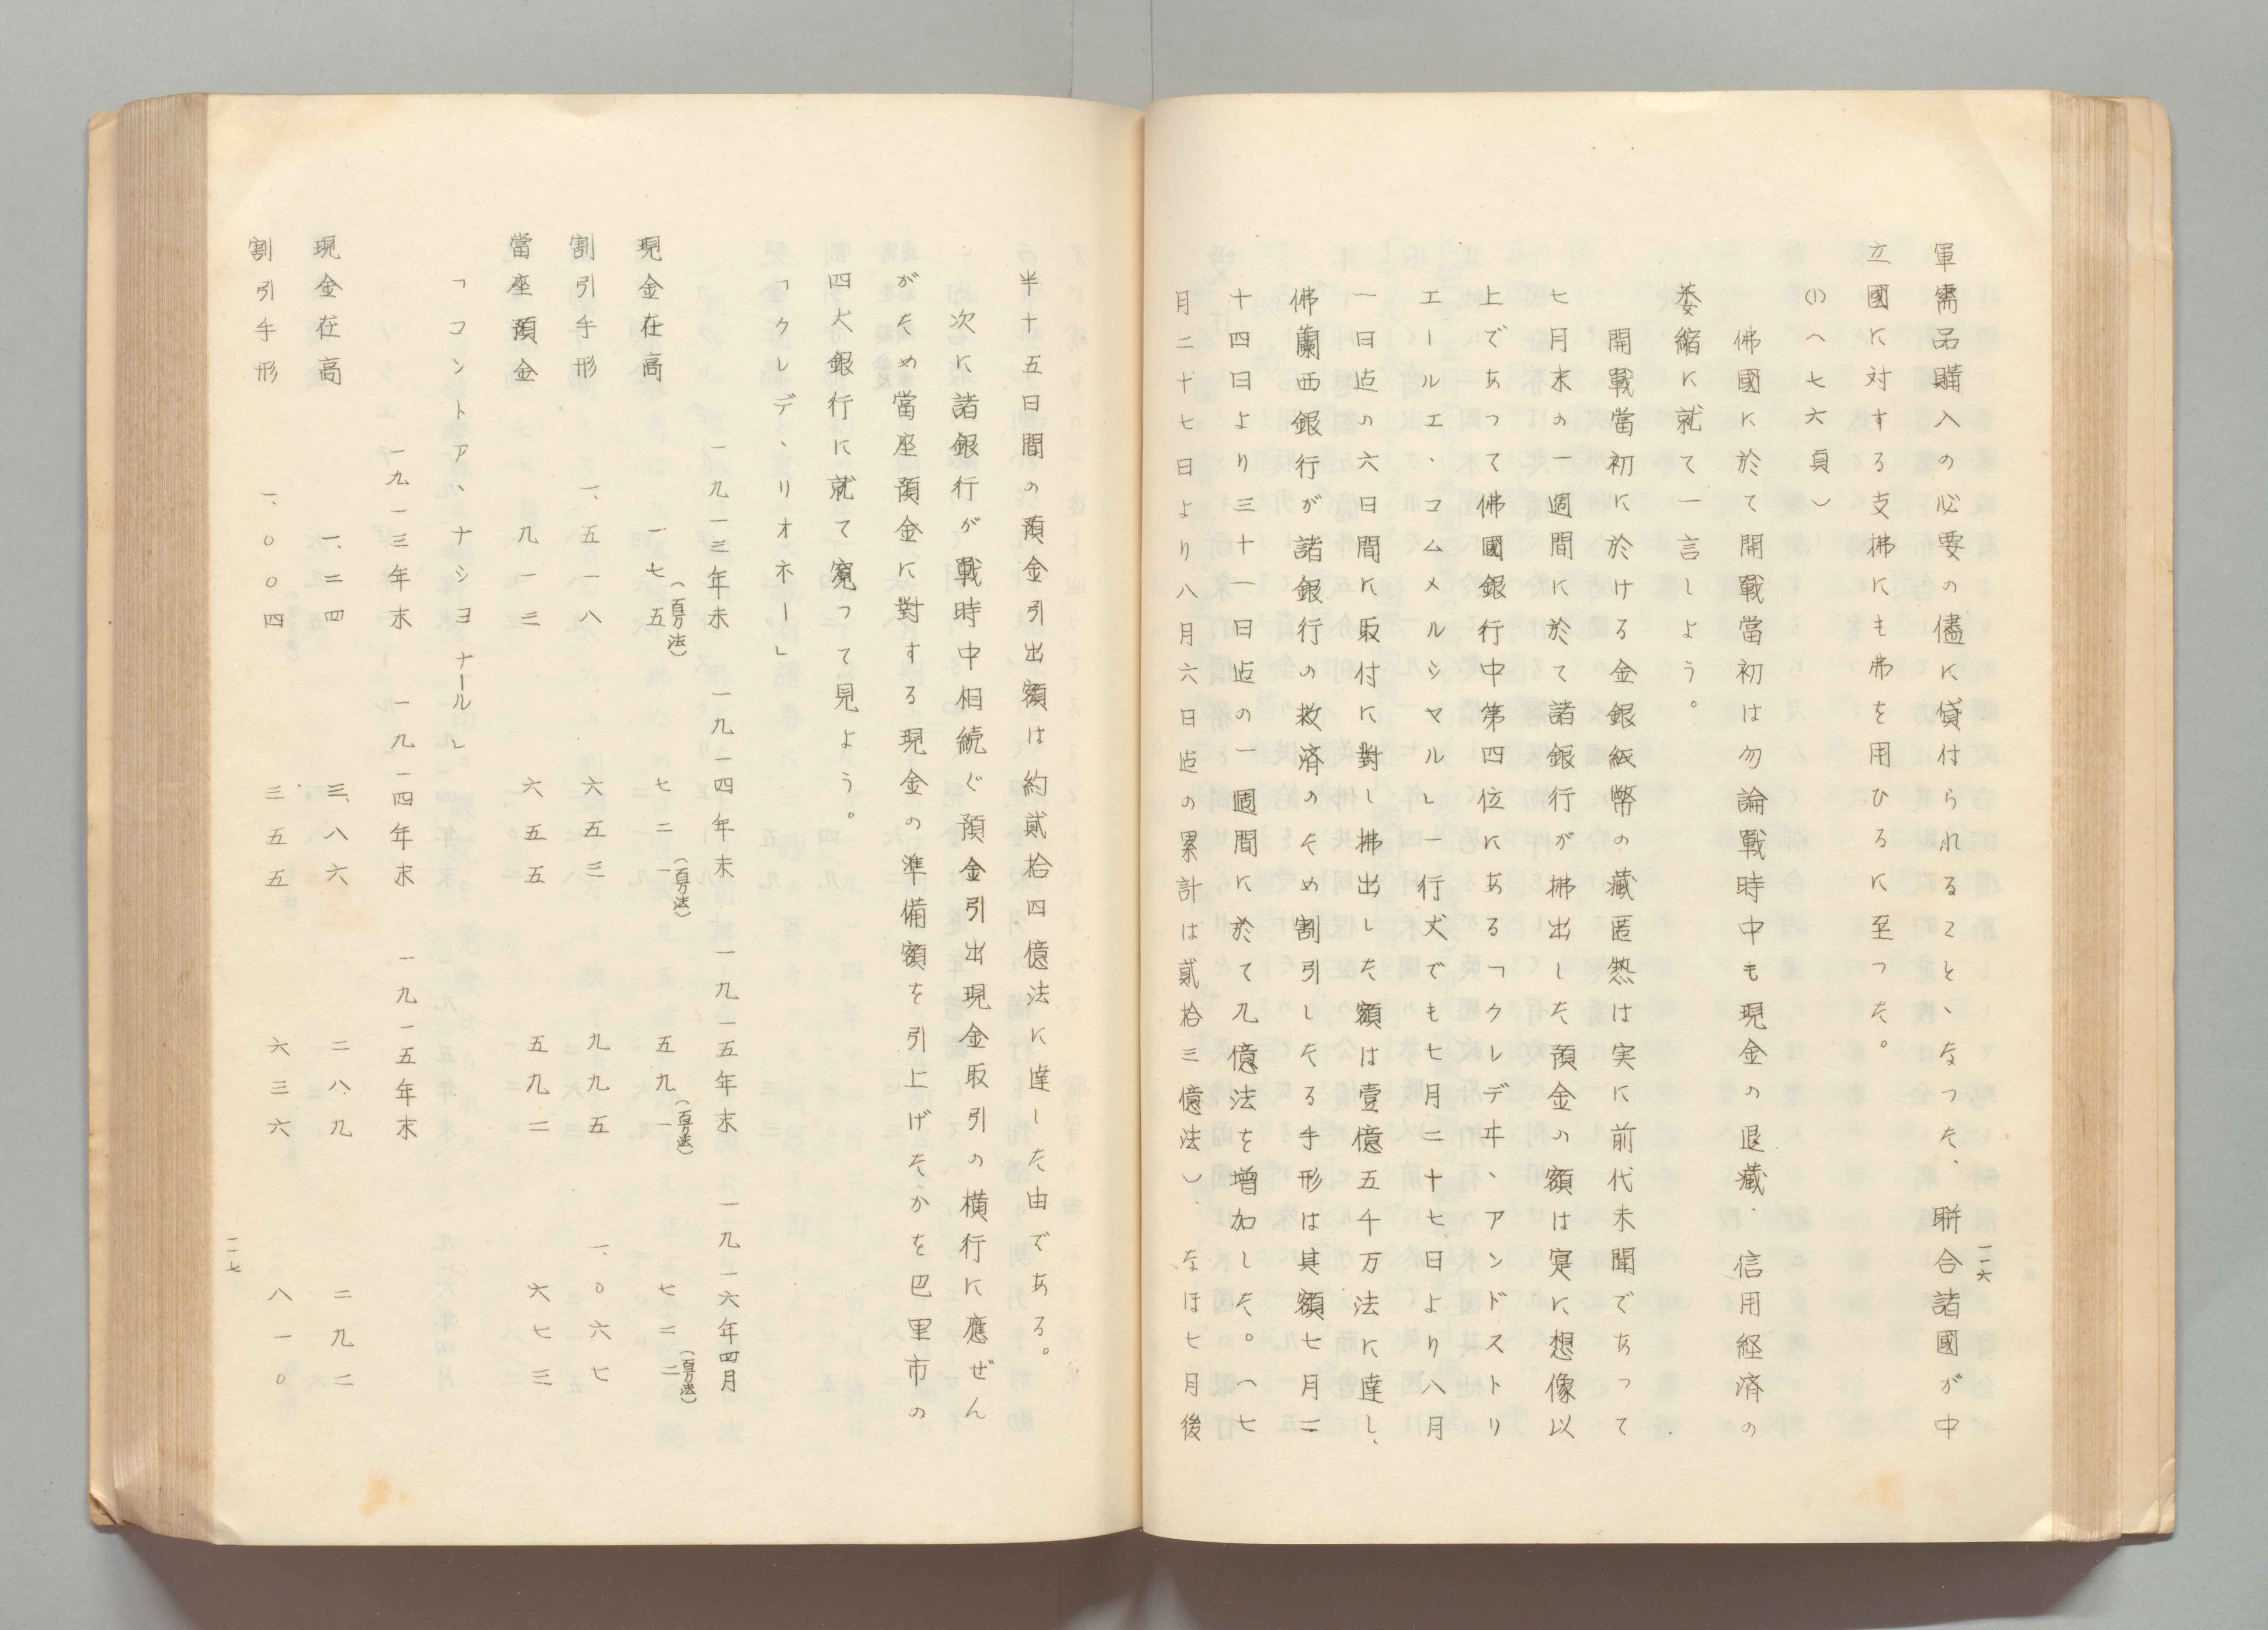 軍需品購入の必要の儘に貸付られることゝなつた、聯合諸國が中
立國に対する支拂にも弗を用ひるに至つた。
(1)(七六頁)
佛國に於て開戰當初は勿論戰時中も現金の退藏、信用経済の
萎縮に就て一言しよう。
開戰當初に於ける金銀紙幣の藏匿熱は実に前代未聞であつて
七月末の一週間に於て諸銀行が拂出した預金の額は寔に想像以
上であつて佛國銀行中第四位にある「クレデヰ、アンドストリ
エールエ、コムメルシヤル」一行丈でも七月二十七日より八月
一日迠の六日間に取付に對し拂出した額は壹億五千万法に達し、
佛蘭西銀行が諸銀行の救済のため割引したる手形は其額七月二
十四日より三十一日迠の一週間に於て九億法を増加した。(七
月二十七日より八月六日迠の累計は貳拾三億法)なほ七月後
一一六
半十五日間の預金引出額は約貳拾四億法に達した由である。
次に諸銀行が戰時中相続ぐ預金引出現金取引の横行に應ぜん
がため當座預金に對する現金の準備額を引上げたかを巴里市の
四大銀行に就て窺つて見よう。
「クレデ、リオネー」
一九一三年末 一九一四年末 一九一五年末 一九一六年四月
(百万法) (百万法) (百万法) (百万法)
現金在高 一七五 七二一 五九一 七二二
割引手形 一、五一八 六五三 九九五 一、〇六七
當座預金 九一三 六五五 五九二 六七三
「コントア、ナシヨナール」
一九一三年末 一九一四年末 一九一五年末
現金在高 一、二四 三、八六 二八九 二九二
割引手形 一、〇〇四 三五五 六三六 八一〇
一一七